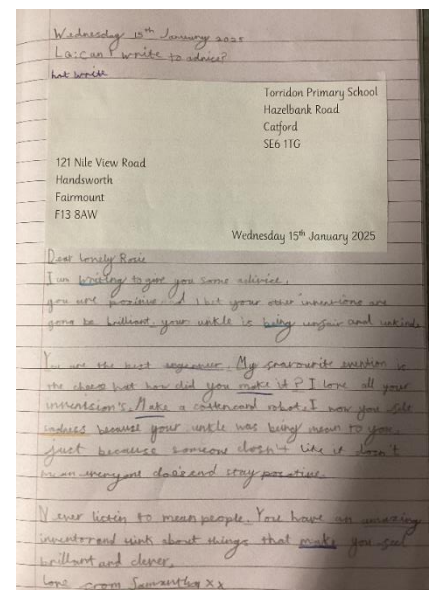 Wednesday 15th January 2025
La: can I write to advice?
hot write
Torridon Primary School
Hazelbank Road
Catford
SE6 1TG
121 Nile View Road
Handsworth
Fairmount
F13 8AW
Wednesday 15th January 2025
Dear Lonely Rosie
I am writing to give you some
you are and I bet your other inventions are
gona be brilliant. your unkle is being unfair and unkind.
You are the best My evention is
the cheese hat how did you make it? I love all your
Make a robot. I now you
because your unkle was being mean to you.
just because someone dosn't like it don't
mean everyone stay
Never listen to mean people. You have an amazing
and think about things that make you feel
brilliant and clever,
Love from Samantha xx